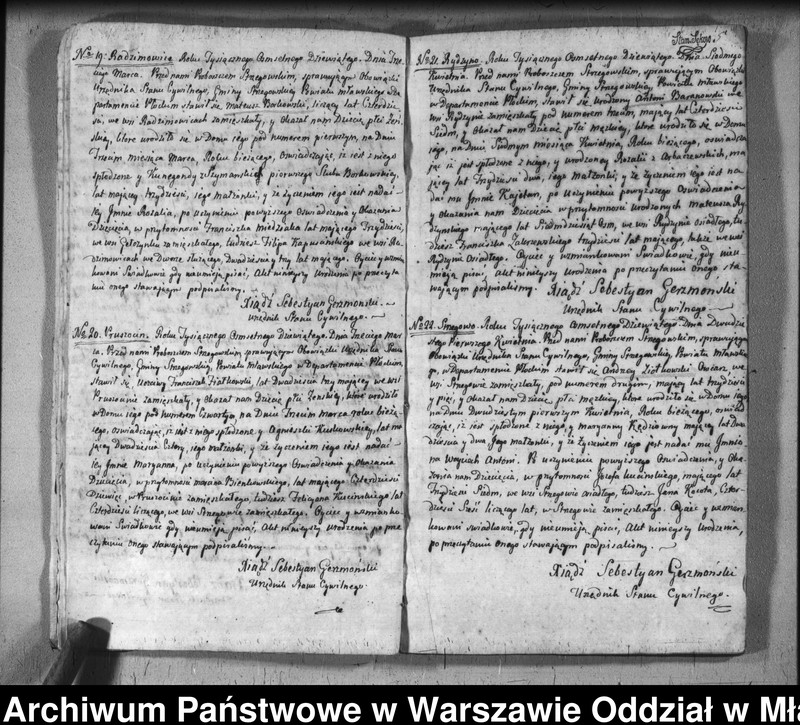 No 19. Radzimowice Roku Tysiącznego Osmsetnego Dziewiątego. Dnia Trze-
ciego Marca. Przed nami Proboszczem Strzegowskim, sprawującym Obowiązki
Urzędnika Stanu Cywilnego, Gminy Strzegowskiej Powiatu Mławskiego De-
partamencie Płockim stawił się Mateusz Borkowski, liczący lat Czterdzie-
ści, we wsi Radzimowicach zamieszkały, y okazał nam Dziecię płci Żeń-
skiej, które urodziło się w Domu iego pod numerem pierwszym, na Dniu
Trzecim miesiąca Marca, Roku bieżącego, oświadczając, iż iest z niego
spłodzone y Kunegundy z Szymańskich pierwszego Ślubu Borkowskiey,
lat mającey trzydzieści, iego małżonki, y że życzeniem iego iest nadać
iey Jmnie Rozalia, po uczynieniu powyższego Oświadczenia y Okazania
Dziecięcia, w przytomności Franciszka lat mającego Trzydzieści,
we wsi zamieszkałego, tudzież Filipa we wsi Ra-
dzimowicach we Dworze służącego, Dwadzieścia y trzy lat mającego. Oyciec y wzmian-
kowani Świadkowie gdy nieumieją pisać, Akt ninieyszy Urodzenia po przeczyta-
niu onego stawającym podpisaliśmy.
Xiądz Sebestyan Gerzmoński.
Urzędnik Stanu Cywilnego.
No 20. Prusocin. Roku Tysiącznego Osmsetnego Dziewiątego. Dnia Trzeciego Mar-
ca. Przed nami Proboszczem Strzegowskim, sprawującym Obowiązki Urzędnika Stanu
Cywilnego, Gminy Strzegowskiey, Powiatu Mławskiego w Departamencie Płockim,
stawił się Uczciwy Franciszek Ziółkowski lat Dwadzieścia trzy mający we wsi
Prusocinie zamieszkały, y okazał nam Dziecię płci Żeńskiey, które urodziło
w Domu iego pod Numerem Czwartym, na Dniu Trzecim Marca roku bieżą-
cego, oświadczając, iż iest z niego spłodzone y Agnieszki lat ma-
jącey Dwadzieścia Cztery, iego małżonki, y że życzeniem iego iest nadać
iey Jmnie Maryanna, po uczynieniu powyższego Oświadczenia y Okazania
Dziecięcia, w przytomności Marcina Bienkowskiego, lat mającego Czterdzieści
Dziewięć, w Prusocinie zamieszkałego, tudzież Felicyana Kucińskiego lat
Czterdzieści liczącego, we wsi Strzegowie zamieszkałego. Oyciec y wzmianko-
wani Świadkowie gdy nieumieją pisać, Akt ninieyszy urodzenia po prze-
czytaniu onego stawającym podpisaliśmy.
Xiądz Sebestyan Gerzmoński
Urzędnik Stanu Cywilnego.
No 21. Rydzyno. Roku Tysiącznego Osmsetnego Dziewiątego. Dnia Siódmego
Kwietnia. Przed nami Proboszczem Strzegowskim, sprawującym Obowiązki
Urzędnika Stanu Cywilnego, Gminy Strzegowskiey, Powiatu Mławskiego
w Departamencie Płockim, stawił się Urodzony Antoni Baranowski we
wsi Rydzynie zamieszkały pod numerem trzecim, mający lat Czterdzieści
Siedm, y Okazał nam Dziecię płci męzkiey, które urodziło się w Domu
iego, na Dniu Siódmym miesiąca Kwietnia, Roku bieżącego, oświadcza-
jąc iż iest spłodzone z niego, y urodzoney Rozalii z ma-
jącey lat Trzydzieści dwa, iego Małżonki, y że życzeniem iego iest na-
dać mu Jmnie Kajetan, po Uczynieniu powyższego Oświadczenia
y Okazania nam Dziecięcia w przytomności Urodzonych Mateusza Ry-
dzyńskiego mającego lat Siedmdziesiąt Osm, we wsi Rydzynie osiadłego, tu-
dzież Franciszka Zakrzewskiego trzydzieści lat mającego, także we wsi
Rydzynie Osiadłego. Oyciec y wzmiankowani Świadkowie, gdy nieu-
mieją pisać, Akt ninieyszy Urodzenia po przeczytaniu onego sta-
wającym podpisaliśmy. Xiądz Sebestyan Gerzmoński
Urzędnik Stanu Cywilnego.
No 22. Strzegowo. Roku Tysiącznego Osmsetnego Dziewiątego. Dnia Dwudzie-
stego Pierwszego Kwietnia. Przed nami Proboszczem Strzegowskim, sprawującym
Obowiązki Urzędnika Stanu Cywilnego, Gminy Strzegowskiey, Powiatu Mławskie-
go, w Departamencie Płockim stawił się Andrzey Ziółkowski Owczarz we
wsi Strzegowie zamieszkały, pod numerem drugim, mający lat trzydzieści
y pięć, y okazał nam Dziecię, płci męzkiey, które urodziło się w Domu iego
na Dniu Dwudziestym pierwszym Kwietnia, Roku bieżącego, oświad-
czając, iż iest spłodzone z niego, y Maryanny mającey lat Dwa-
dzieścia y dwa Jego Małżonki, y że życzeniem iego jest nadać mu Jmnio-
na Woyciech Antoni. Po uczynieniu powyższego Oświadczenia, y Oka-
zania nam Dziecięcia, w przytomności Józefa mającego lat
Trzydzieści Siedm, we wsi Strzegowie osiadłego, tudzież Jana Kocota, Czter-
dzieści Sześć liczącego lat, w Strzegowie zamieszkałego. Oyciec y wzmian-
kowani świadkowie, gdy nieumieją pisać, Akt ninieyszy Urodzenia,
po przeczytaniu onego stawającym podpisaliśmy.
Xiądz Sebestyan Gerzmoński
Urzędnik Stanu Cywilnego.
Archiwum Państwowe w Warszawie Oddział w Mła